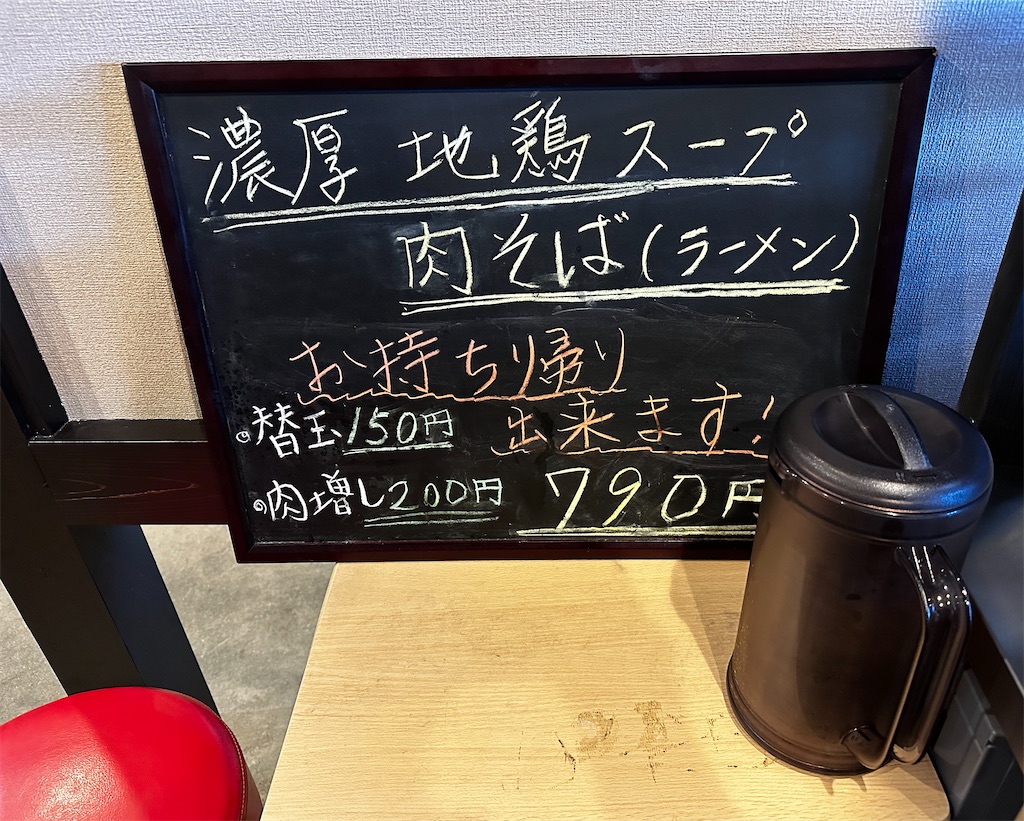 濃厚 地鶏スープ
肉そば(ラーメン)
お持ち帰り
出来ます!
。替玉150円
。肉増し200円
790円